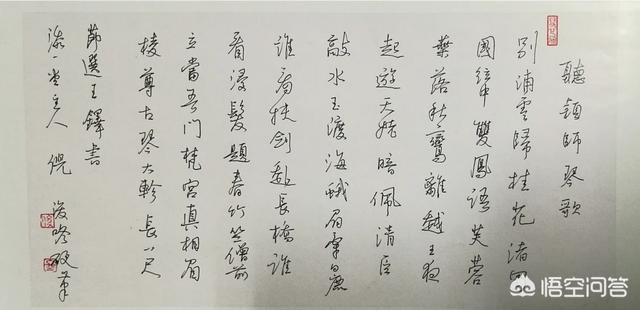 聽穎師琴歌
別浦雲歸桂花渚蜀
國絃中雙鳳語芙蓉
葉落秋鸞離越王夜
起遊天姥暗佩清臣
敲水玉渡海蛾眉牽白鹿
誰看挾劍赴長橋誰
看浸髮題春竹竺僧前
立當吾門梵宮真相眉
棱尊古琴大軫長八尺
節選王鐸書
一堂主人 倪
硬筆
悟空问答